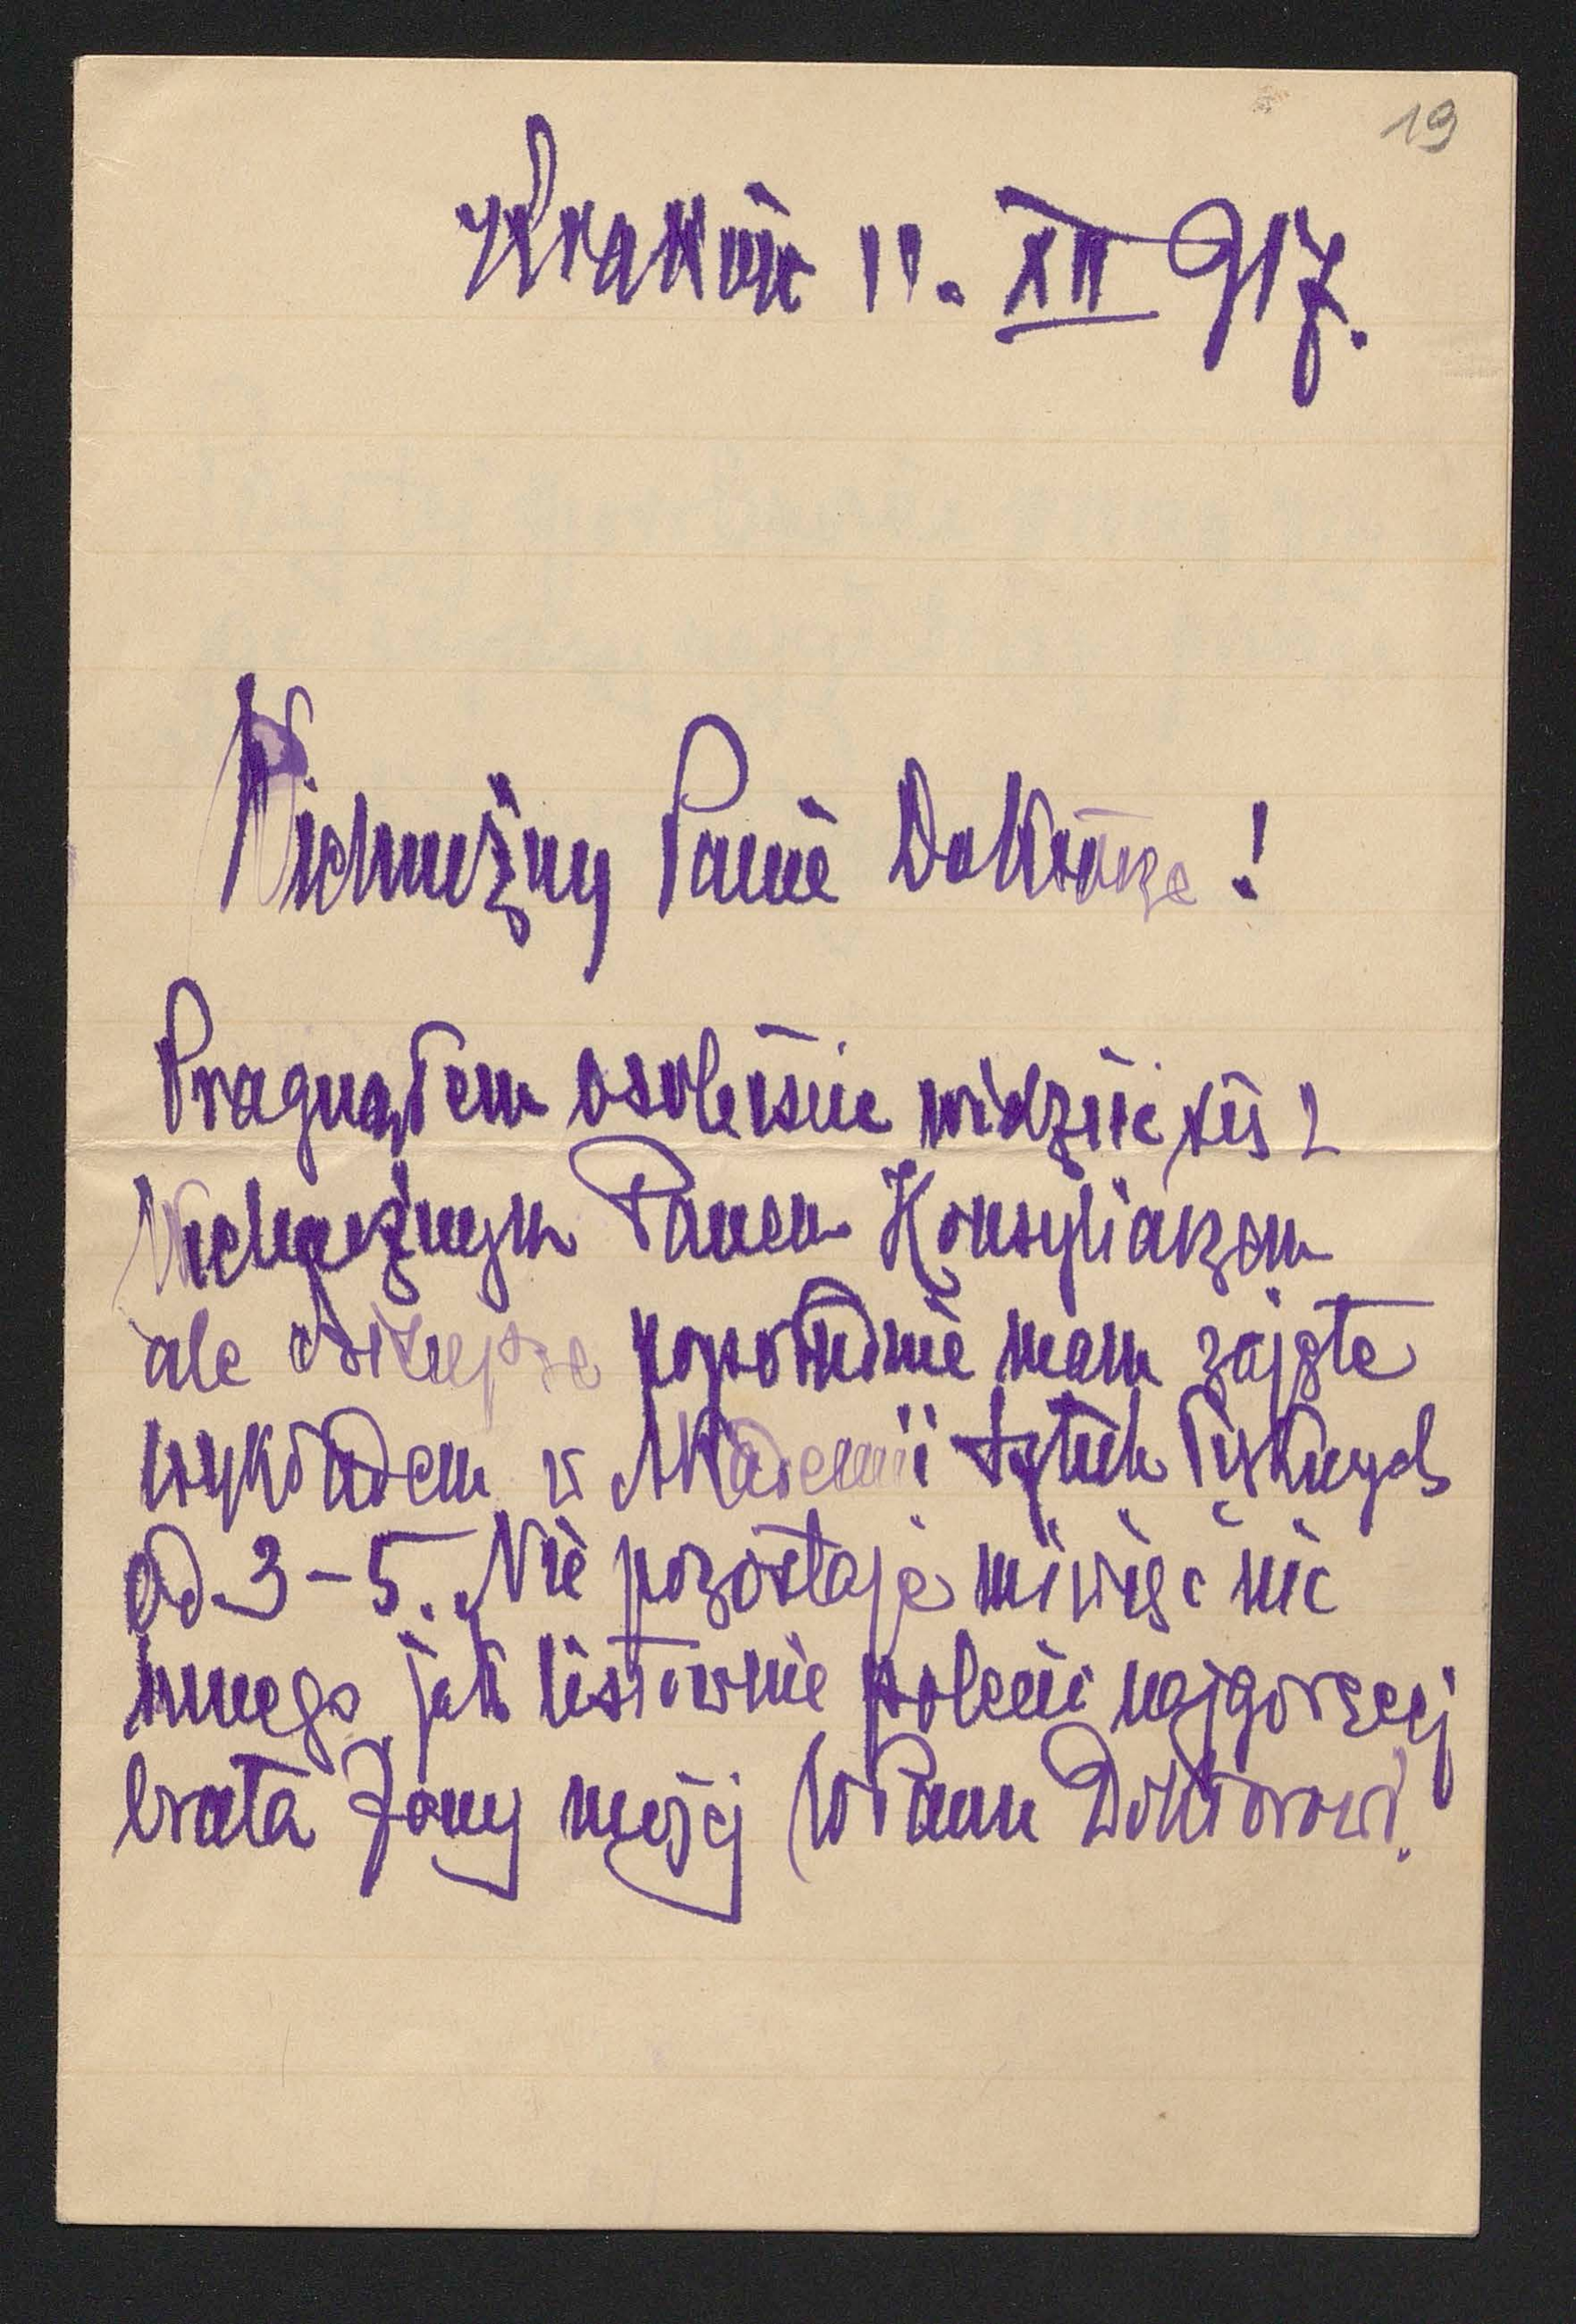 19
Kraków 11. XII 917.
Wielmożny Panie Doktorze!
Pragnąłem osobiście widzieć się z
Wielmożnym Panem Konsyliarzem
ale dzisiejsze popołudnie mam zajęte
wykładem w Akademii Sztuk Pięknych
od 3-5. Nie pozostaje mi więc nic
innego jak listownie polecić najgoręcej
brata Żony mojej WPanu Doktorowi.